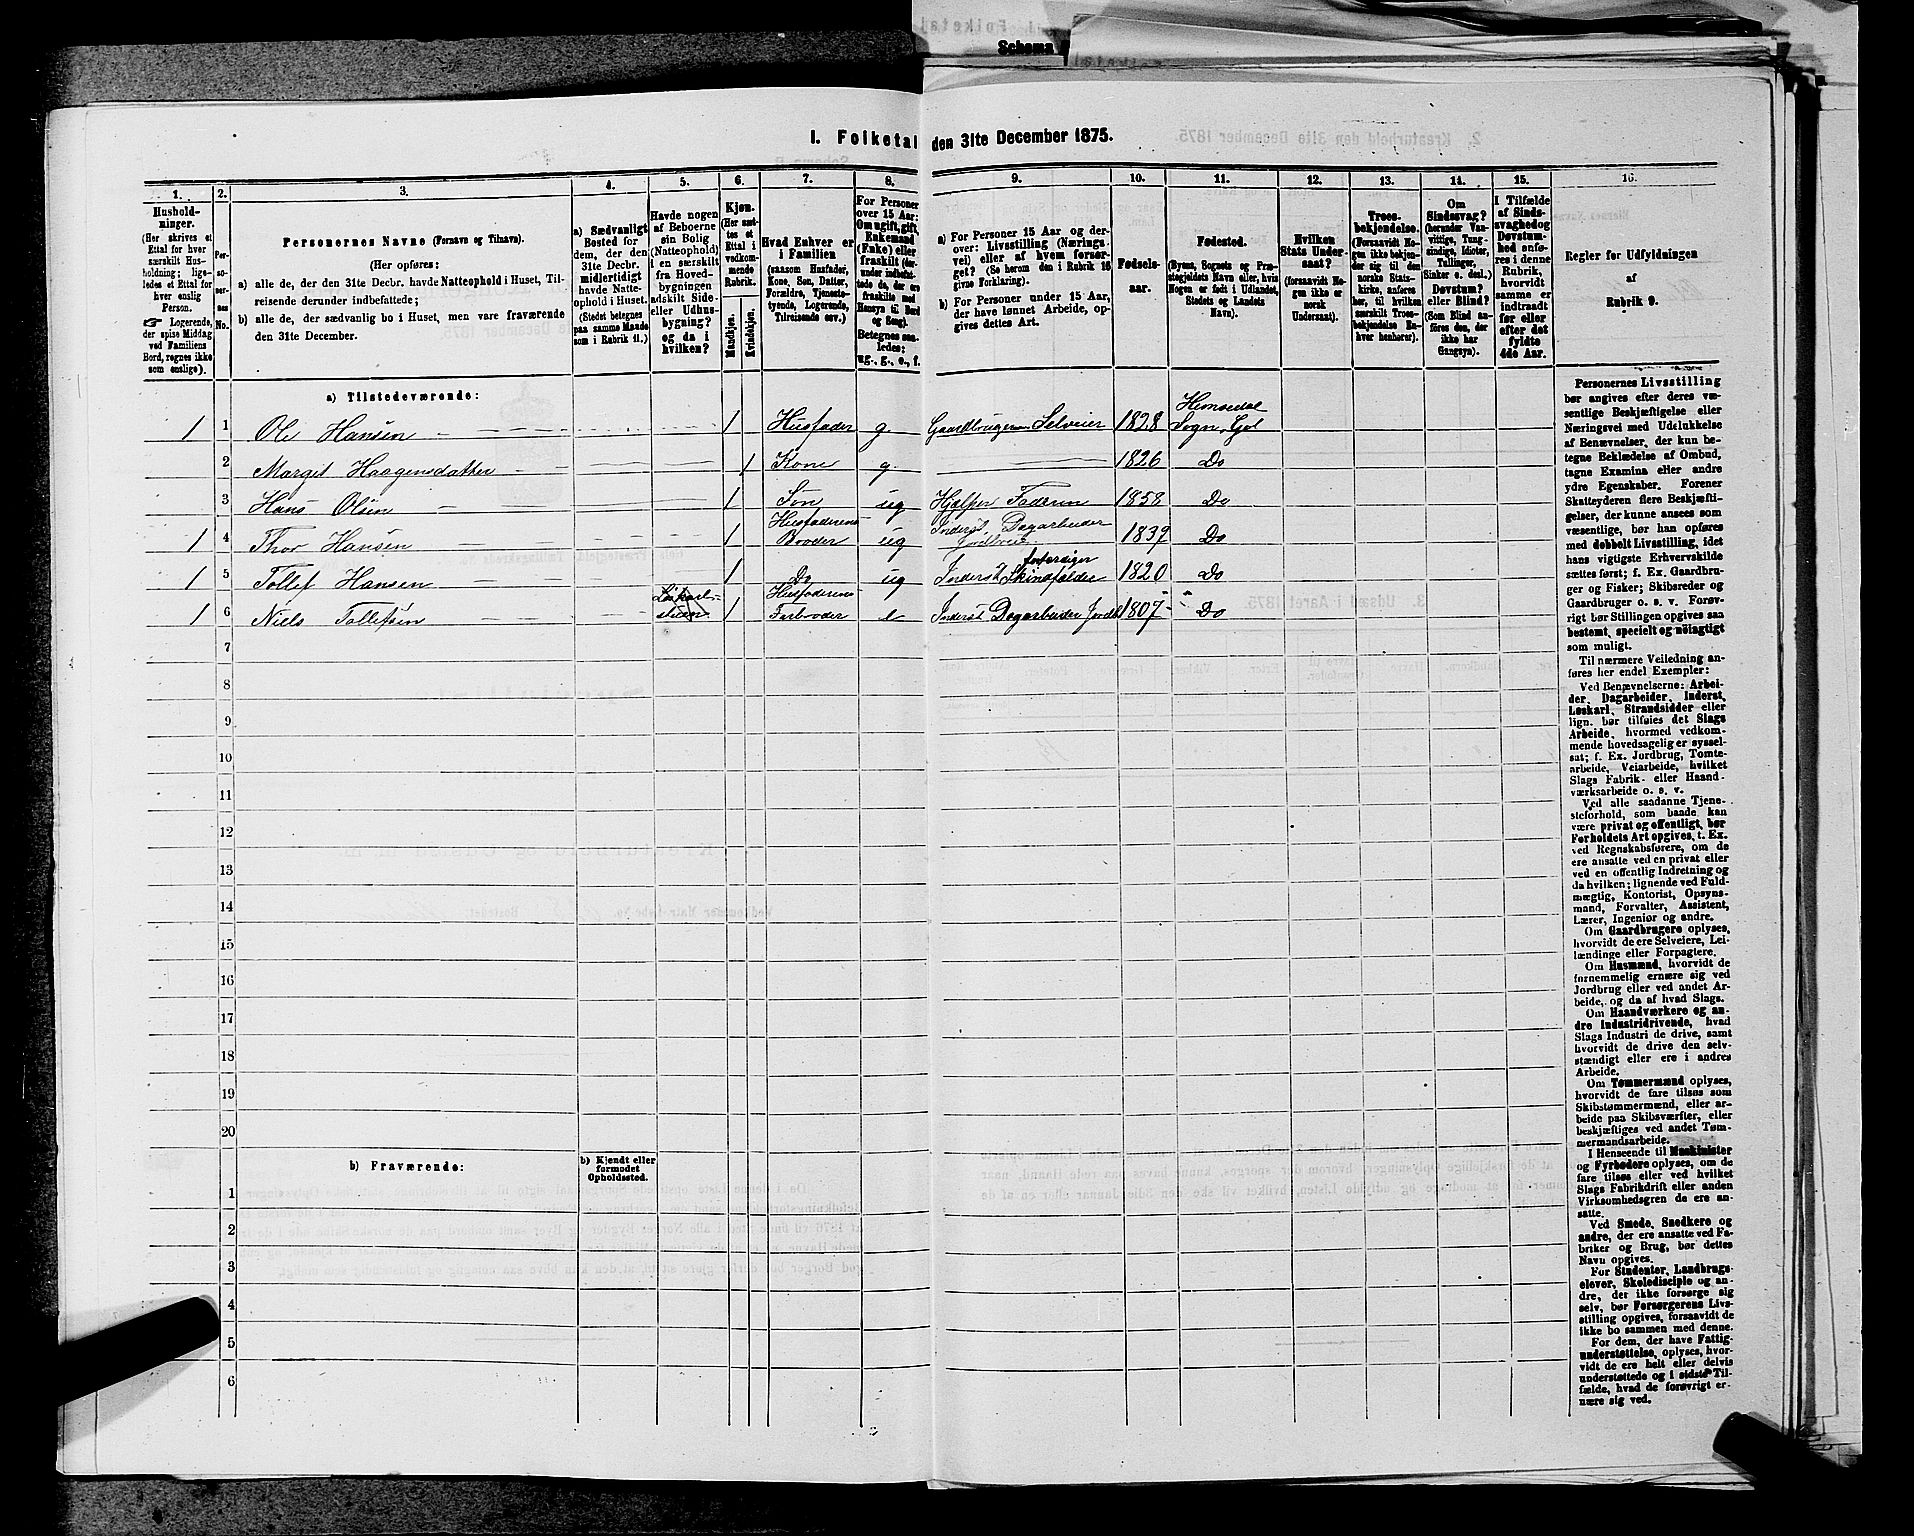 Schema
I. Folketal den 31te December 1875.
1. 2. 3. 4. 5. 6. 7. 8. 9. 10. 11. 12. 13. 14. 15. 16.
Hushold-
ninger.
(Her skrives et
Ettal for hver
særskilt Hus-
holdning; lige-
ledes et Ettal for
hver enslig
Person.
☞ Logerende,
der spise Middag
ved Familiens
Bord, regnes ikke
som enslige).
Per-
so-
ner-
nes
No.
Personernes Navne (Fornavn og Tilnavn).
(Her opføres:
a) alle de, der den 31te Decbr. havde Natteophold i Huset, Til-
reisende derunder indbefattede;
b) alle de, der sædvanlig bo i Huset, men vare fraværende
den 31te December.
a) Sædvanligt
Bosted for
dem, der den
31te Decbr.
midlertidigt
havde Natte-
ophold i Huset.
(Stedet betegnes
paa samme Maade
som i Rubrik 11.)
Havde nogen
af Beboerne
sin Bolig
(Natteophold)
i en særskilt
fra Hoved-
bygningen
adskilt Side-
eller Udhus-
bygning?
og da i
hvilken?
Kjøn.
(Her sæt-
tes et
Ettal i
vedkom-
mende
Rubrik.
Mandkjøn.
Kvindekjøn.
Hvad Enhver er
i Familien
(saasom Husfader,
Kone, Søn, Datter,
Forældre, Tjeneste-
tyende, Logerende,
Tilreisende osv.)
For Personer
over 15 Aar:
Om ugift, gift,
Enkemand
(Enke) eller
fraskilt (der-
under indbefat-
tede de, der ere
fraskilte med
Hensyn til Bord
og Seng).
Betegnes saa-
ledes:
ug., g., e., f.
a) For Personer 15 Aar og der-
over: Livsstilling (Nærings-
vei) eller af hvem forsør-
get? (Se herom den i Rubrik 16
givne Forklaring).
b) For Personer under 15 Aar,
der have lønnet Arbeide, op-
gives dettes Art.
Fødsels-
aar.
Fødested.
(Byens, Sognets og Præ-
stegjeldets Navn eller, hvis
Nogen er født i Udlandet,
Stedets og Landets
Navn).
Hvilken
Stats Under-
saat?
(forsaavidt No-
gen ikke er
norsk
Undersaat).
Troes-
bekjendelse.
(Forsaavidt No-
gen ikke bekjen-
der sig til den
norske Stats-
kirke, anføres
her, til hvilken
særskilt Troes-
bekjendelse En-
hver henhører).
Om
Sindssvag?
(herunder Van-
vittige, Tung-
sindige, Idioter,
Tullinger,
Sinker o. desl.)
Døvstum?
eller Blind?
(Som Blind an-
føres den, der
ikke har
Gangsyn).
I Tilfælde
af Sinds-
svaghed og
Døvstum-
hed anfø-
res i denne
Rubrik,
hvorvidt
samme er
indtraadt
før eller
efter det
fyldte
4de Aar.
Regler for Udfyldningen
af
Rubrik 9.
a) Tilstedeværende:
1 1 Ole Hansen 1 Husfader g. Gaardbruger Selveier 1828 Hemsedal Sogn, Gol
2 Margit Haagensdatter 1 Kone g. 1826 Do
3 Hans Olsen 1 Søn ug Hjælper Faderen 1858 Do
1 4 Thor Hansen 1 Husfaderens Broder ug Inderst Dagarbeider 1839 Do
1 5 Tollef Hansen 1 Do ug Inderst Skindfælder 1820 Do
1 6 Niels Tollefsen 1 Husfaderens Farbroder e Inderst Dagarbeider Jordb 1807 Do
7
8
9
10
11
12
13
14
15
16
17
18
19
20
b) Fraværende:
b) Kjendt eller
formodet
Opholdssted.
1
2
3
4
5
6
Personernes Livsstilling
bør angives efter deres væ-
sentlige Beskjæftigelse eller
Næringsvei med Udelukkelse
af Benævnelser, der kun be-
tegne Beklædelse af Ombud,
tagne Examina eller andre
ydre Egenskaber. Forener
Skatteyderen flere Beskjæfti-
gelser, der kunne ansees som
væsentlige, bør han opføres
med dobbelt Livsstilling, idet
hans vigtigste Erhvervskilde
sættes først; f. Ex. Gaardbru-
ger og Fisker; Skibsreder og
Gaardbruger o. s. v. Forøv-
rigt bør Stillingen opgives saa
bestemt, specielt og nøiagtigt
som muligt.
Til nærmere Veiledning an-
føres her endel Exempler:
Ved Benævnelserne: Arbei-
der, Dagarbeider, Inderst,
Løskarl, Strandsidder eller
lign. bør tilføies det Slags
Arbeide, hvormed vedkom-
mende hovedsagelig er syssel-
sat; f. Ex. Jordbrug, Tomte-
arbeide, Veiarbeide, hvilket
Slags Fabrik- eller Haand-
værksarbeide o. s. v.
Ved alle saadanne Tjene-
steforhold, som baade kan
være privat og offentligt, bør
Forholdets Art opgives, f. Ex.
ved Regnskabsførere, om de
ere ansatte ved en privat eller
ved en offentlig Indretning og
da hvilken; lignende ved Fuld-
mægtig, Kontorist, Opsyns-
mand, Forvalter, Assistent,
Lærer, Ingeniør og andre.
Om Gaardbrugere oplyses,
hvorvidt de ere Selveiere, Lei-
lændinge eller Forpagtere.
Om Husmænd, hvorvidt de
fornemmelig ernære sig ved
Jordbrug eller ved andet Ar-
beide, og da af hvad Slags.
Om Haandværkere og an-
dre Industridrivende, hvad
Slags Industri de drive, samt
hvorvidt de drive den selv-
stændigt eller ere i andres
Arbeide.
Om Tømmermænd oplyses,
hvorvidt de fare tilsøs som
Skibstømmermænd, eller ar-
beide paa Skibsværfter, eller
beskjæftiges ved andet Tøm-
mermandsarbeide.
I Henseende til Maskinister
og Fyrbødere oplyses, om de
fare tilsøs eller ved hvilket
Slags Fabrikdrift eller anden
Virksomhedsgren de ere an-
satte.
Ved Smede, Snedkere og
andre, der ere ansatte ved Fa-
briker og Brug, bør dettes
Navn opgives.
For Studenter, Landbrugs-
elever, Skoledisciple og an-
dre, der ikke forsørge sig
selv, bør Forsørgerens Livs-
stilling opgives, forsaavidt de
ikke bo sammen med denne.
For dem, der have Fattig-
understøttelse, oplyses, hvor-
vidt de ere helt eller delvis
understøttede og i sidste Til-
fælde, hvad de forøvrigt er-
nære sig ved.